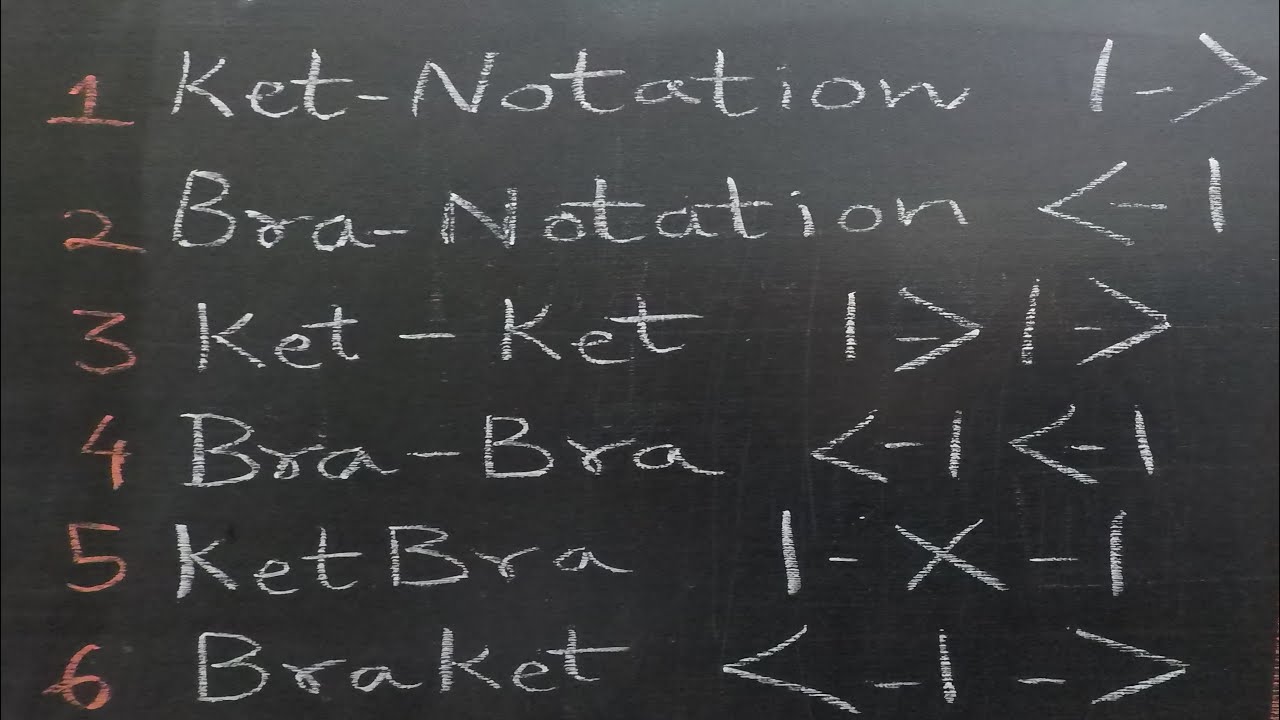 1 Ket-Notation |->
2 Bra-Notation <-|
3 Ket-Ket |->|->
4 Bra-Bra <-|<-|
5 KetBra |-X-|
6 Braket <-|->